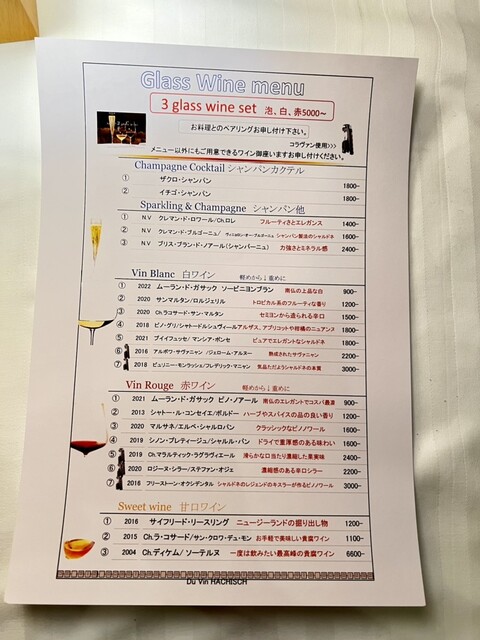 Glass Wine menu
3 glass wine set 泡、白、赤5000~
お料理とのペアリングお申し付け下さい。
コラヴァン使用>>>
メニュー以外にもご用意できるワイン御座いますお申し付けください。
Champagne Cocktail シャンパンカクテル
① ザクロ・シャンパン 1800-
② イチゴ・シャンパン 1800-
Sparkling & Champagne シャンパン他
① N.V クレマン・ド・ロワール/Ch.ロレ フルーティさとエレガンス 1400-
② N.V クレマン・ド・ブルゴーニュ/ シャンパン製法のシャルドネ 1600-
③ N.V ブリス・ブラン・ド・ノアール(シャンパーニュ) 力強さとミネラル感 2400-
Vin Blanc 白ワイン 軽めから↓重めに
① 2022 ムーラン・ド・ガサック ソービニヨンブラン 南仏の上品な白 900-
② 2020 サンマルタン/ロルジェリル トロピカル系のフルーティな香り 1200-
③ 2020 Ch.ラコサード・サン・マルタン セミヨンから造られる辛口 1500-
④ 2018 ピノ・グリ/シャトードルシュヴィールアルザス、アプリコットや柑橘のニュアンス 1800-
⑤ 2021 プイイフュッセ/マンシア・ポンセ ピュアでエレガントなシャルドネ 2200-
⑥ 2016 アルボワ・サヴァニャン /ジェローム・アルヌー 熟成されたサヴァニャン 2200-
⑦ 2018 ピュリニー・モンラッシェ/フレデリック・マニャン 気品ただようシャルドネの本質 3000-
Vin Rouge 赤ワイン 軽めから↓重めに
① 2021 ムーランド・ガサック ピノ・ノアール 南仏のエレガントでコスパ最高 900-
② 2013 シャトー・ル・コンセイエ/ボルドー ハーブやスパイスの品の良い香り 1200-
③ 2020 マルサネ/エルベ・シャルロパン クラッシックなピノノワール 1600-
④ 2019 シノン・プレティージュ/シャルル・パン ドライで重厚感のある味わい 1600-
⑤ 2019 Ch.マルラティック・ラグラヴィエール 滑らかな口当たり濃縮した果実味 2400-
⑥ 2020 ロジーヌ・シラー/ステファン・オジェ 濃縮感のある辛口シラー 2200-
⑦ 2018 フリーストーン・オクシデンタル シャルドネのレジェンドのキスラーが作るピノノワール 3000-
Sweet wine 甘口ワイン
① 2016 サイフリード・リースリング ニュージーランドの掘り出し物 1200-
② 2015 Ch.ラ・コサード/サン・クロワ・デュ・モン お手軽で美味しい貴腐ワイン 1100-
③ 2004 Ch.ディケム/ ソーテルヌ 一度は飲みたい最高峰の貴腐ワイン 6600-
Du Vin HACHISCH